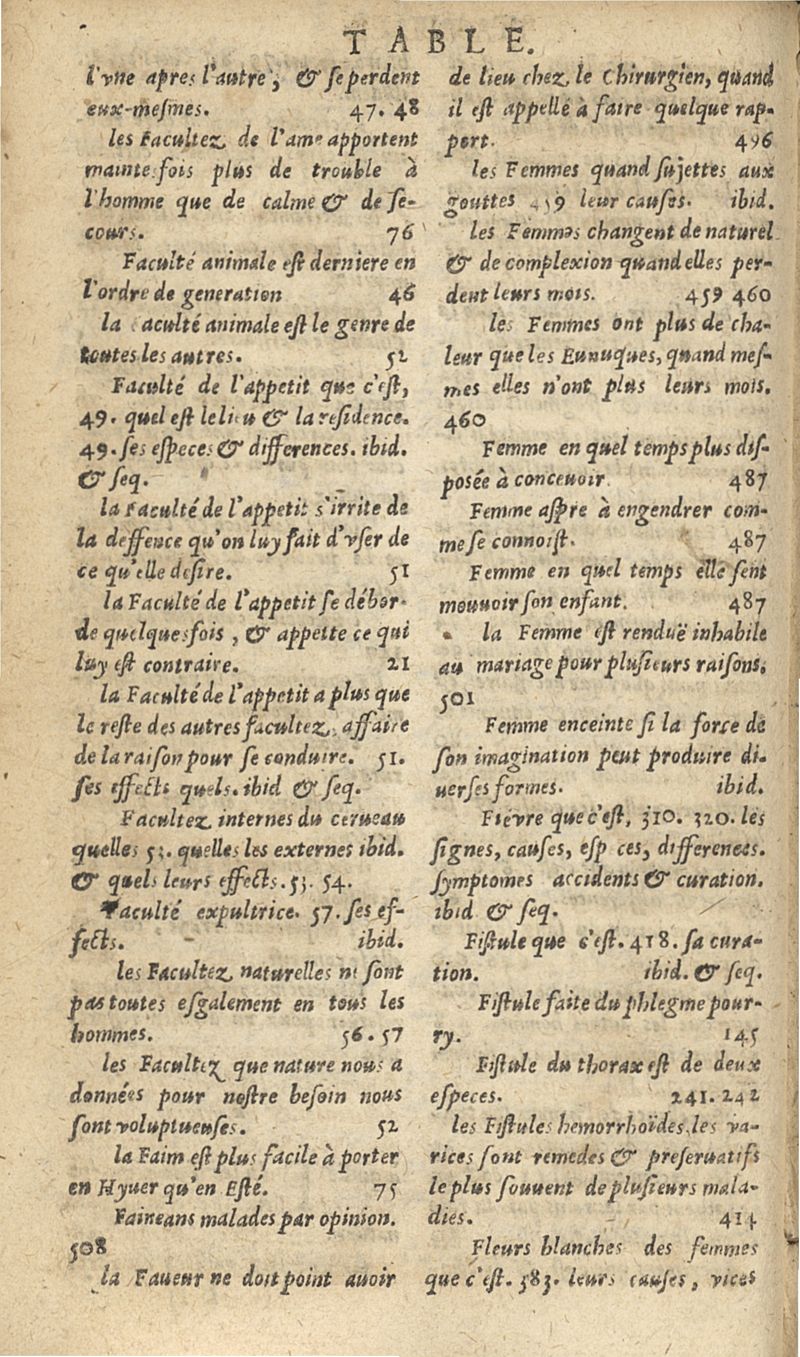 TABLE.
l'vne apres l'autre, & se perdent
eux-mesmes. 47. 48
les Facultez de l'ame apportent
mainte fois plus de trouble à
l'homme que de calme & de se-
cours. 76
Faculté animale est derniere en
l'ordre de generation 46
la aculté animale est le genre de
toutes les autres. 52
Faculté de l'appetit que c'est,
49. quel est le lieu & la residence.
49. ses especes & differences. ibid.
& seq.
la Faculté de l'appetit s'irrite de
la deffence qu'on luy fait d'vser de
ce qu'elle desire. 51
la Faculté de l'appetit se débor-
de quelquesfois, & appette ce qui
luy est contraire. 21
la Faculté de l'appetit a plus que
le reste des autres facultez, affaire
de la raison pour se conduire. 51.
ses effects quels. ibid & seq.
Facultez internes du cerueau
quelles 53. quelles les externes ibid.
& quels leurs effects. 53. 54.
Faculté expultrice. 57. ses ef-
fects. ibid.
les Facultez naturelles ne sont
pas toutes esgalement en tous les
hommes. 56. 57
les Facultez que nature nous a
données pour nostre besoin nous
sont voluptueuses. 52
la Faim est plus facile à porter
en Hyuer qu'en Esté. 75
Faineans malades par opinion.
508
la Faueur ne doit point auoir
de lieu chez le Chirurgien, quand
il est appellé à faire quelque rap-
port. 496
les Femmes quand sujettes aux
gouttes 459 leur causes. ibid.
les Femmes changent de naturel
& de complexion quand elles per-
dent leurs mois. 459 460
les Femmes ont plus de cha-
leur que les Eunuques, quand mes-
mes elles n'ont plus leurs mois.
460
Femme en quel temps plus dis-
posée à conceuoir. 487
Femme aspre à engendrer com-
me se connoist. 487
Femme en quel temps elle sent
mouuoir son enfant. 487
la Femme est renduë inhabile
au mariage pour plusieurs raisons.
501
Femme enceinte si la force de
son imagination peut produire di-
uerses formes. ibid.
Fiévre que c'est, 310. 320. les
signes, causes, esp ces, differences.
symptomes accidents & curation.
ibid & seq.
Fistule que c'est. 418. sa cura-
tion. ibid. & seq.
Fistule faite du phlegme pour-
ry. 145
Fistule du thorax est de deux
especes. 241. 242
les Fistules hemorrhoïdes, les va-
rices sont remedes & preseruatifs
le plus souuent de plusieurs mala-
dies. 414
Fleurs blanches des femmes
que c'est. 383. leurs causes, vices